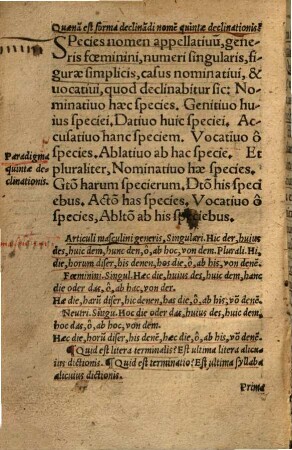 Quænã est forma declinãdi nomẽ quintæ declinationis?
Species nomen appellatiuũ, gene
ris fœminini, numeri singularis, fi
guræ simplicis, casus nominatiui, &
uocatiui, quod declinabitur sic: No
minatiuo hæc species. Genitiuo hu
ius speciei. Datiuo huic speciei. Ac
cusatiuo hanc speciem. Vocatiuo ô
Paradigma
quintæ de
clinationis.
species. Ablatiuo ab hac specie. Et
pluraliter, Nominatiuo hæ species.
Gtõ harum specierum. Dtõ his speci
ebus. Actõ has species. Vocatiuo ô
species, Abltõ ab his speciebus.
Articuli masculini generis, Singulari. Hic der, huius
des, huic dem, hunc den, ô, ab hoc, von dem. Plurali. Hi
die, horum diser, his denen, hos die, ô, ab his, von denẽ.
Fœminini. Singul. Hæc die, huius des, huic dem, hanc
die oder das, ô, ab hac, von der.
Hæ die, harũ diser, his denen, has die, ô, ab his, võ denẽ.
Neutri. Singu. Hoc die oder das, huius des, huic dem,
hoc das, ô, ab hoc, von dem.
Hæc die, horũ diser, his denẽ, hæc die, ô, ab his, võ denẽ.
¶ Quid est litera terminalis? Est ultima litera alicu
ius dictionis. ¶ Quid est terminatio? Est ultima syllaba
alicuius dictionis.
Prima